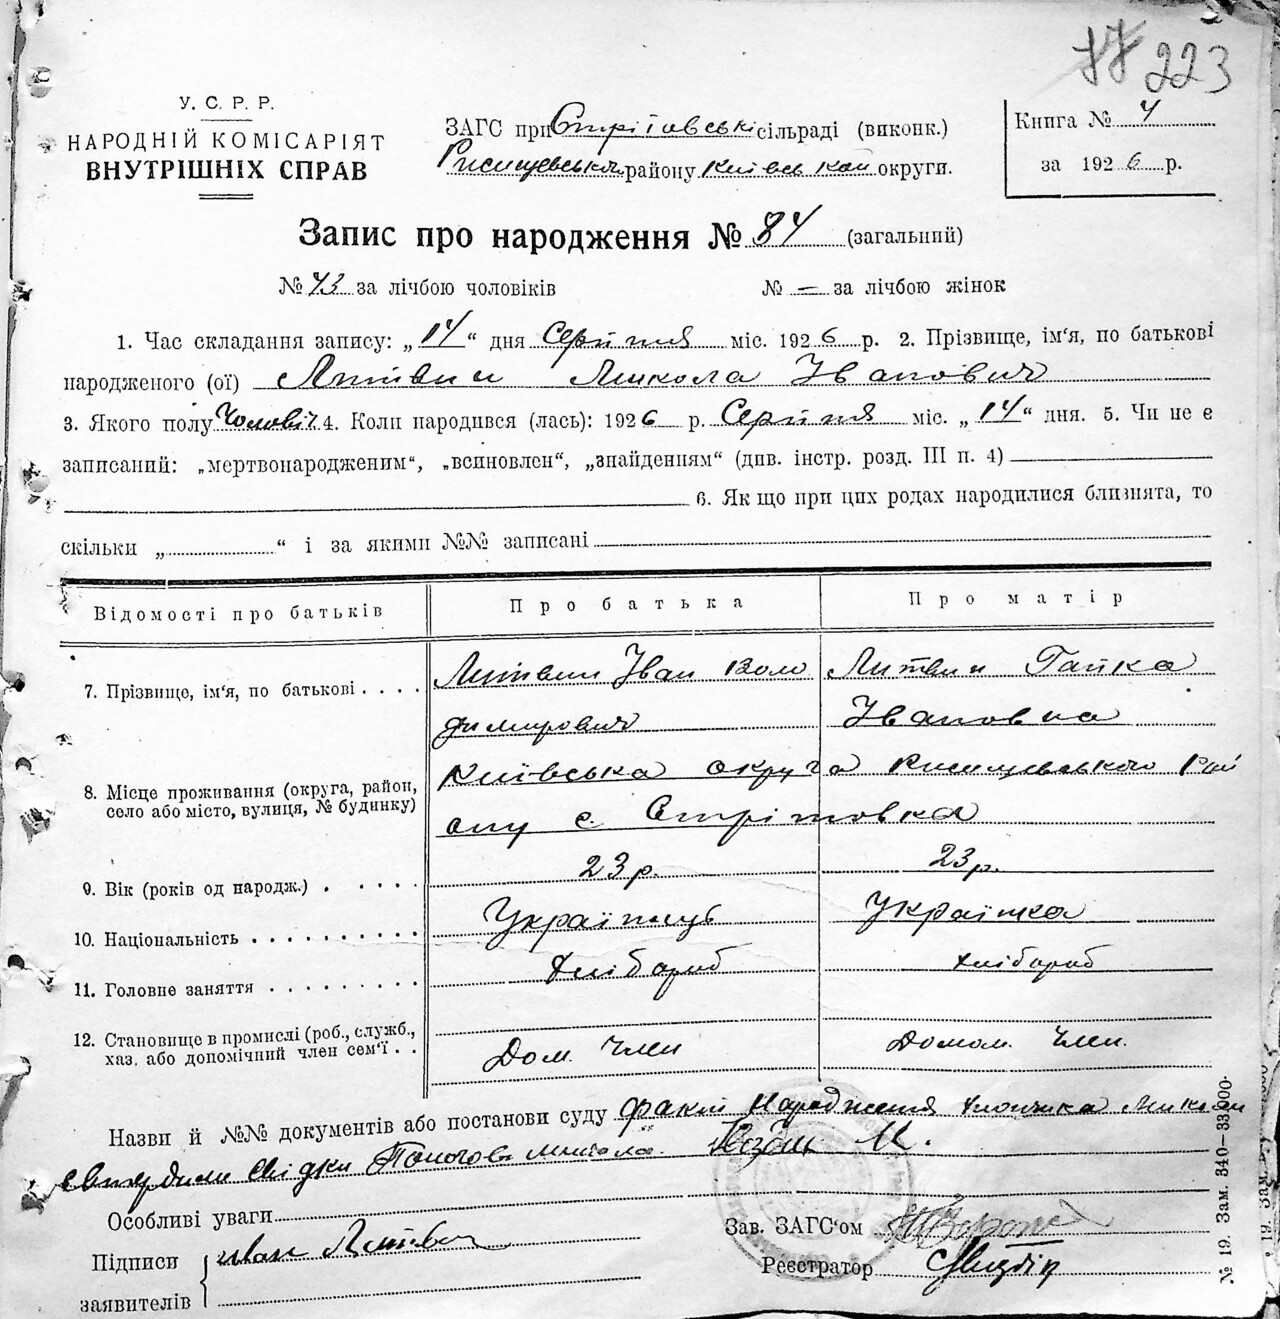 223
У. С. Р. Р.
НАРОДНІЙ КОМІСАРІЯТ
ВНУТРІШНІХ СПРАВ
ЗАГС при Стрітовські сільраді (виконк.)
Рисищевськом району Київськой округи.
Книга № 4
за 1926 р.
Запис про народження № 84 (загальний)
№ 43 за лічбою чоловіків № — за лічбою жінок
1. Час складання запису: „14“ дня Серпня міс. 1926 р. 2. Прізвище, ім‘я, по батькові
народженого (ої) Литвин Микола Іванович
3. Якого полу Чоловіч. 4. Коли народився (лась): 1926 р. Серпня міс. „14“ дня. 5. Чи не є
записаний: „мертвонародженим“, „всиновлен“, „знайденням“ (див. інстр. розд. III п. 4)
6. Як що при цих родах народилися близнята, то
скільки „ “ і за якими №№ записані
Відомості про батьків Про батька Про матір
7. Прізвище, ім‘я, по батькові . . . . Литвин Іван Воло Литвин Гапка
димирович Івановна
8. Місце проживання (округа, район, село або місто, вулиця, № будинку) Київська округа Рисищевського Рай
ону с. Стрітовка
9. Вік (років од народж.) . . . . . 23 р. 23 р.
10. Національність . . . . . . . . . . Українець Українка
11. Головне заняття . . . . . . . . . Хлібороб Хлібороб
12. Становище в промислі (роб., служб.,
хаз. або допомічний член сем‘ї . . Дом. Член Домом. Член.
Назви й №№ документів або постанови суду Факт Народження хлопчика Миколи
свидки
Особливі уваги
Підписи
заявителів
Іван Литвин
Зав. ЗАГС‘ом
Реєстратор
№ 19. Зам. 340—33000.